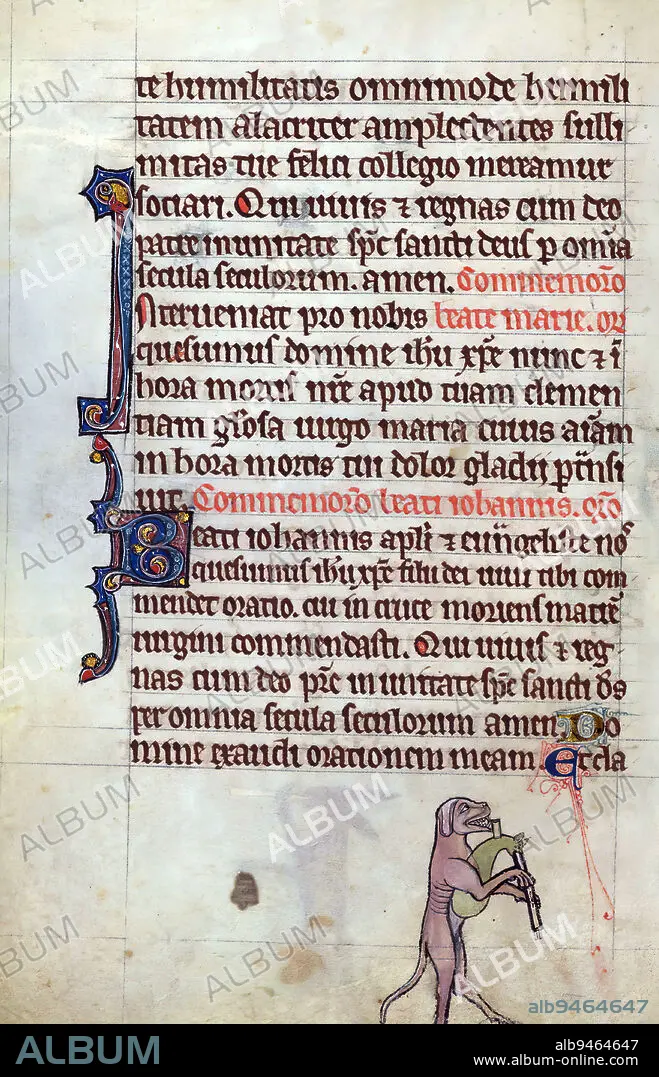 te humilitatis omnimode humili
tatem alacriter amplectentes subli
mitas tue felici collegio mereamur
sociari. Qui uiuis ⁊ regnas cum deo
patre in unitate spc sancti deus p omia
secula seculorum. amen. Commemoro
Interueniat pro nobis beate marie. or
quesumus domine ihu xpe nunc ⁊ i
hora mortis nre apud tuam clemen
tiam glosa uirgo maria cuius aiam
in hora mortis tui dolor gladij ptnsi
uit. Commemoro beati iohannis. oro
Beati iohannis apli ⁊ euugeliste nos
quesumus ihu xpe fili dei uiui tibi com
mendet oratio. cui in cruce moriens matre
uirgini commendasti. Qui uiuis ⁊ reg
nas cum deo pre in unitate spe sancti ds
per omnia secula seculorum amen. Do
mine exaudi orationem meam. Et cla
ALBUM
alb9464647
ALBUM
alb9464647
www.album-online.com